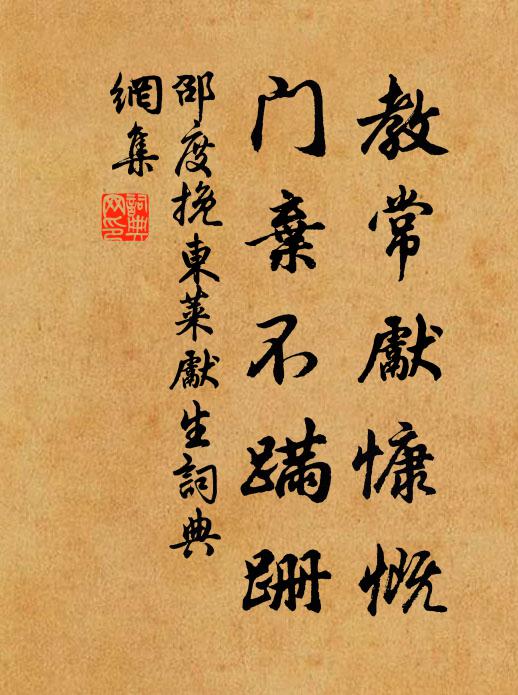 教常獻慷慨
门棄不蹣跚
邵度挽東萊獻生詞典
網集
詞典
网印